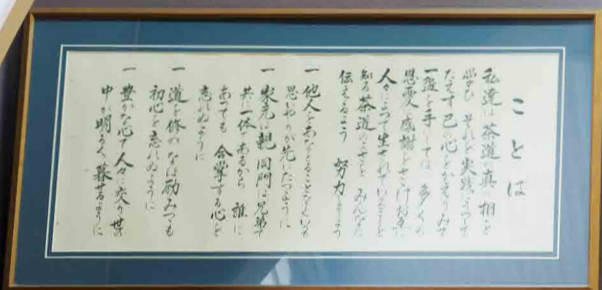 ことば
私達は茶道の真の相を
学び それを実践にうつして
たえず己の心をかえりみて
一盌を手にしては 多くの
恩愛に感謝をささげ お互に
人々によって生かされていることを
知る茶道のよさを みんなに
伝えるよう 努力しましょう
一 他人をあなどることなく いつも
思いやりが先にたつように
一 家元は親 同門は兄弟で
共に一体であるから 誰に
あっても 合掌する心を
忘れぬように
一 道を修めなほ励みつつも
初心を忘れぬように
一 豊かな心で人々に交り 世の
中が明るく暮せるように